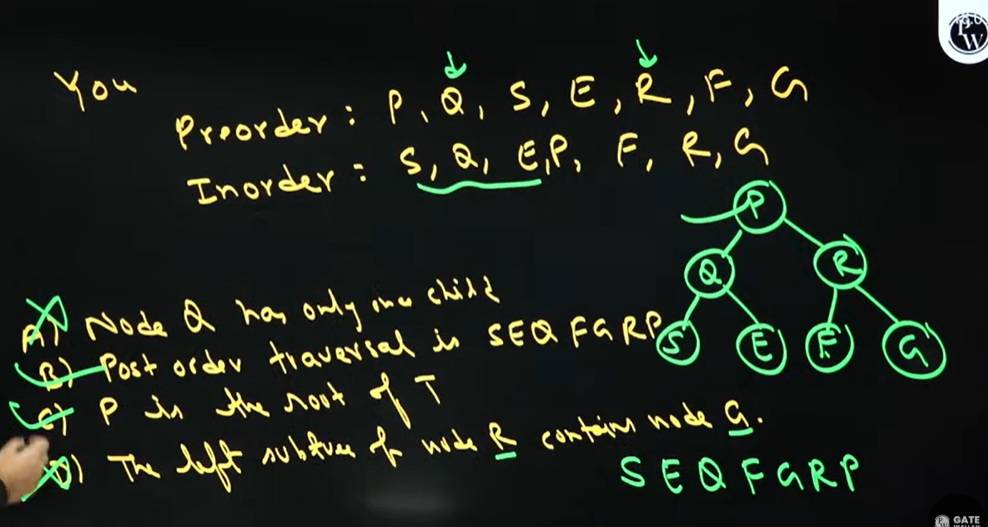 You
Preorder : P, Q, S, E, R, F, G
Inorder : S, Q, E, P, F, R, G
P
Q R
S E F G
A) Node Q has only one child
B) Post order traversal is SEQFGRP
C) P is the root of T
D) The left subtree of node R contains node G.
S E Q F G R P
PW
GATE